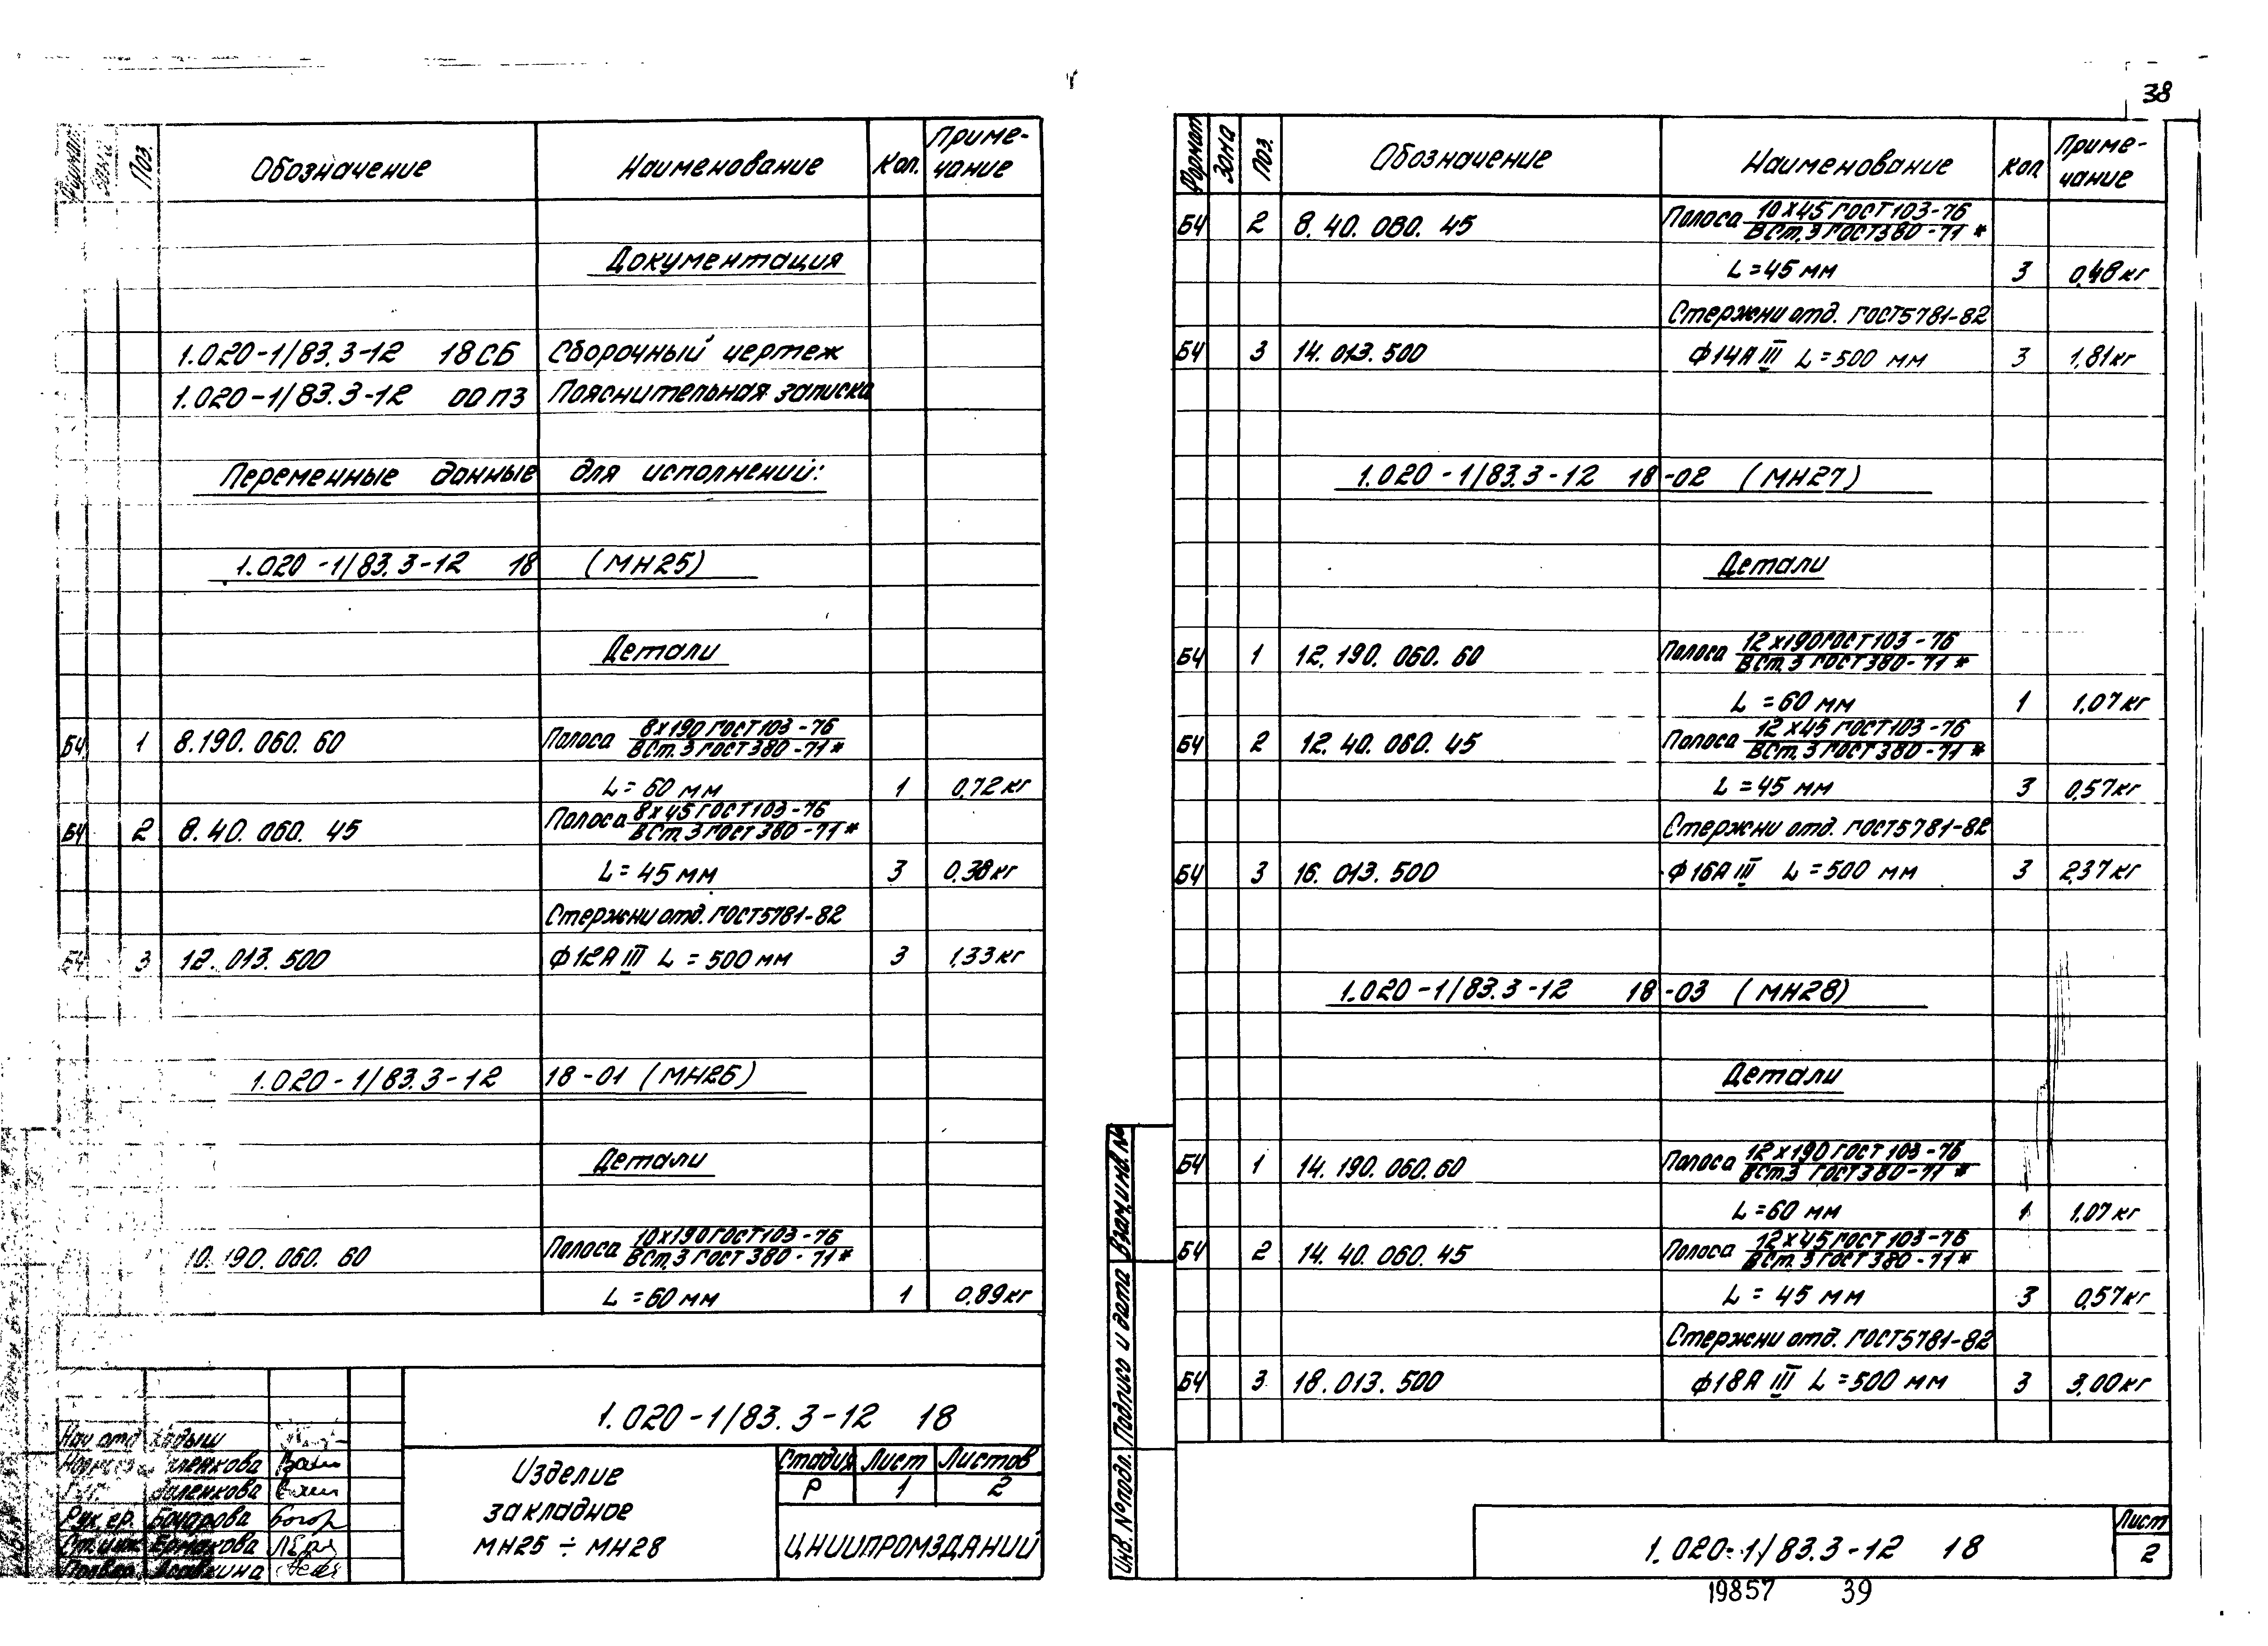 38
Формат Зона Поз. Обозначение Наименование Кол. Приме-
чание
Документация
1.020-1/83.3-12 18СБ Сборочный чертеж
1.020-1/83.3-12 00ПЗ Пояснительная записка
Переменные данные для исполнений:
1.020-1/83.3-12 18 (МН25)
Детали
БЧ 1 8.190.060.60 Полоса 8х190 ГОСТ103-76
ВСт.3 ГОСТ380-71*
L=60 мм 1 0,72кг
БЧ 2 8.40.060.45 Полоса 8х45 ГОСТ103-76
ВСт.3 ГОСТ380-71*
L=45 мм 3 0,38кг
Стержни отд. ГОСТ5781-82
БЧ 3 12.013.500 Ф12АIII L=500мм 3 1,33кг
1.020-1/83.3-12 18-01 (МН26)
Детали
10.190.060.60 Полоса 10х190 ГОСТ103-76
ВСт.3 ГОСТ380-71*
L=60мм 1 0,89кг
1.020-1/83.3-12 18
Нач отд
Изделие
закладное
МН25÷МН28
Стадия Лист Листов
Р 1 2
ЦНИИПРОМЗДАНИЙ
Рук.гр. Бочарова
Ст.инж Ермакова
Формат Зона Поз. Обозначение Наименование Кол Приме-
чание
БЧ 2 8.40.080.45 Полоса 10х45 ГОСТ103-76
ВСт.3 ГОСТ380-71*
L=45 мм 3 0,48кг
Стержни отд. ГОСТ5781-82
БЧ 3 14.013.500 Ф14АIII L=500 мм 3 1,81кг
1.020-1/83.3-12 18-02 (МН27)
Детали
БЧ 1 12.190.060.60 Полоса 12х190ГОСТ103-76
ВСт.3 ГОСТ380-71*
L=60 мм 1 1,07кг
БЧ 2 12.40.060.45 Полоса 12х45 ГОСТ103-76
ВСт.3 ГОСТ380-71*
L=45 мм 3 0,57кг
Стержни отд. ГОСТ5781-82
БЧ 3 16.013.500 Ф16АIII L=500 мм 3 2,37кг
1.020-1/83.3-12 18-03 (МН28)
Детали
БЧ 1 14.190.060.60 Полоса 12х190 ГОСТ103-76
ВСт.3 ГОСТ380-71*
L=60 мм 1 1,07кг
БЧ 2 14.40.060.45 Полоса 12х45 ГОСТ103-76
ВСт.3 ГОСТ380-71*
L=45 мм 3 0,57кг
Стержни отд. ГОСТ5781-82
БЧ 3 18.013.500 Ф18АIII L=500 мм 3 3,00кг
Инв. № подл. Подпись и дата Взам.инв.№
1.020-1/83.3-12 18
Лист
2
19857 39